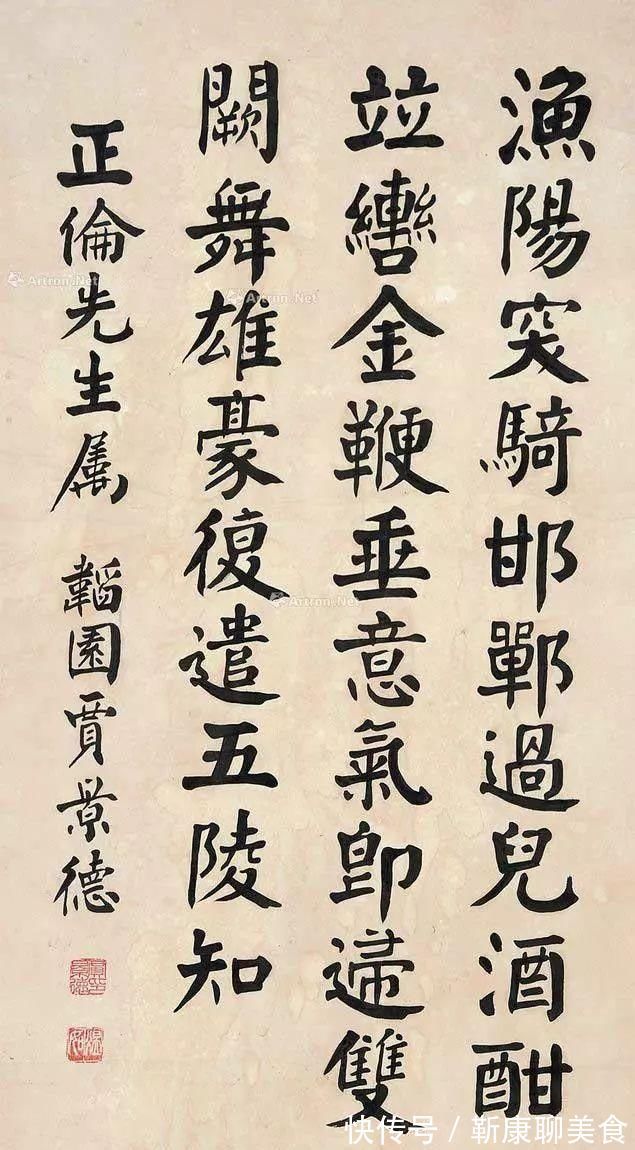 漁陽突騎邯鄲過兒酒酣
竝轡金鞭垂意氣即歸雙
闕舞雄豪復遣五陵知
正倫先生屬 韜園賈景德
Artron.Net
Artron.Net
Artron.Net
快传号/靳康聊美食